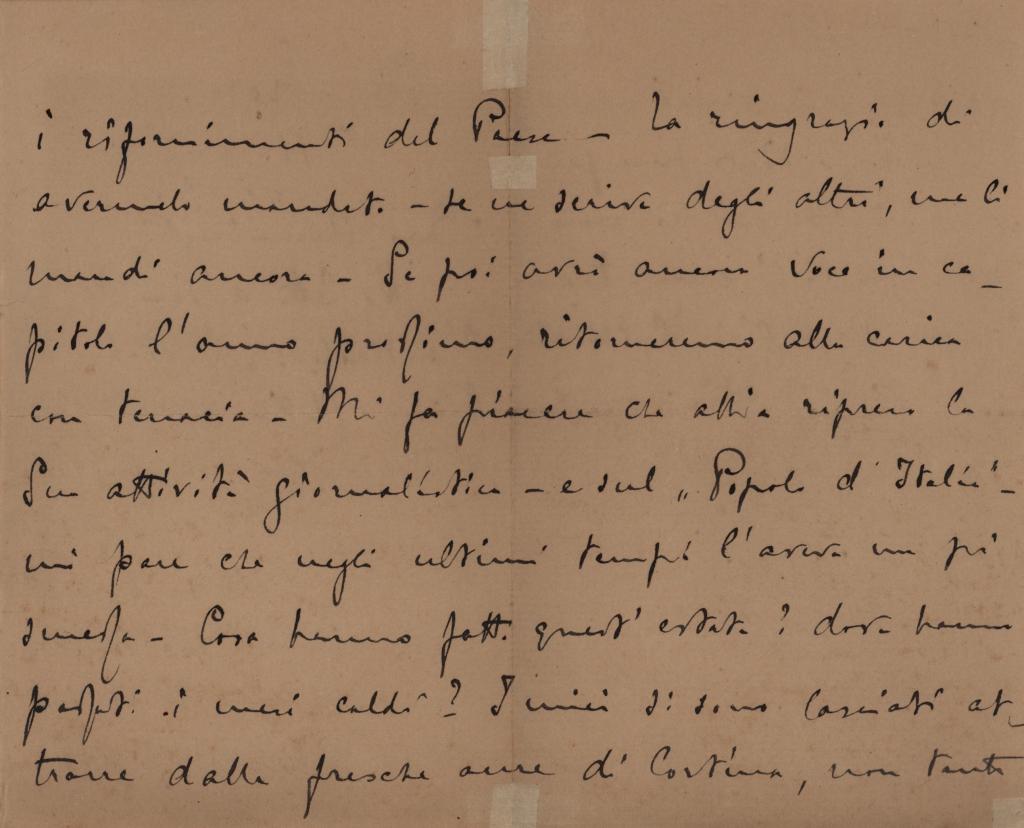 i rifornimenti del Paese – La ringrazio di
avermelo mandato – se ne scriva degli altri, me li
mandi ancora – Se poi avrò ancora voce in ca-
pitolo l'anno prossimo, ritorneremo alla carica
con tenacia – Mi fa piacere che abbia ripreso la
Sua attività giornalistica – e sul „Popolo d'Italia" –
mi pare che negli ultimi tempi l'aveva un pò
smessa – Cosa hanno fatto quest'estate? dove hanno
passati i mesi caldi? I miei si sono lasciati at-
trarre dalle fresche aure di Cortina, non tanto